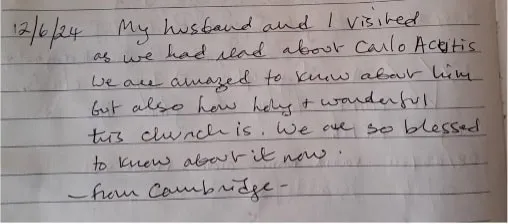 12/6/24 My husband and I visited
as we had read about Carlo Acutis
We are amazed to know about him
but also how holy + wonderful
this church is. We are so blessed
to know about it now.
- from Cambridge -